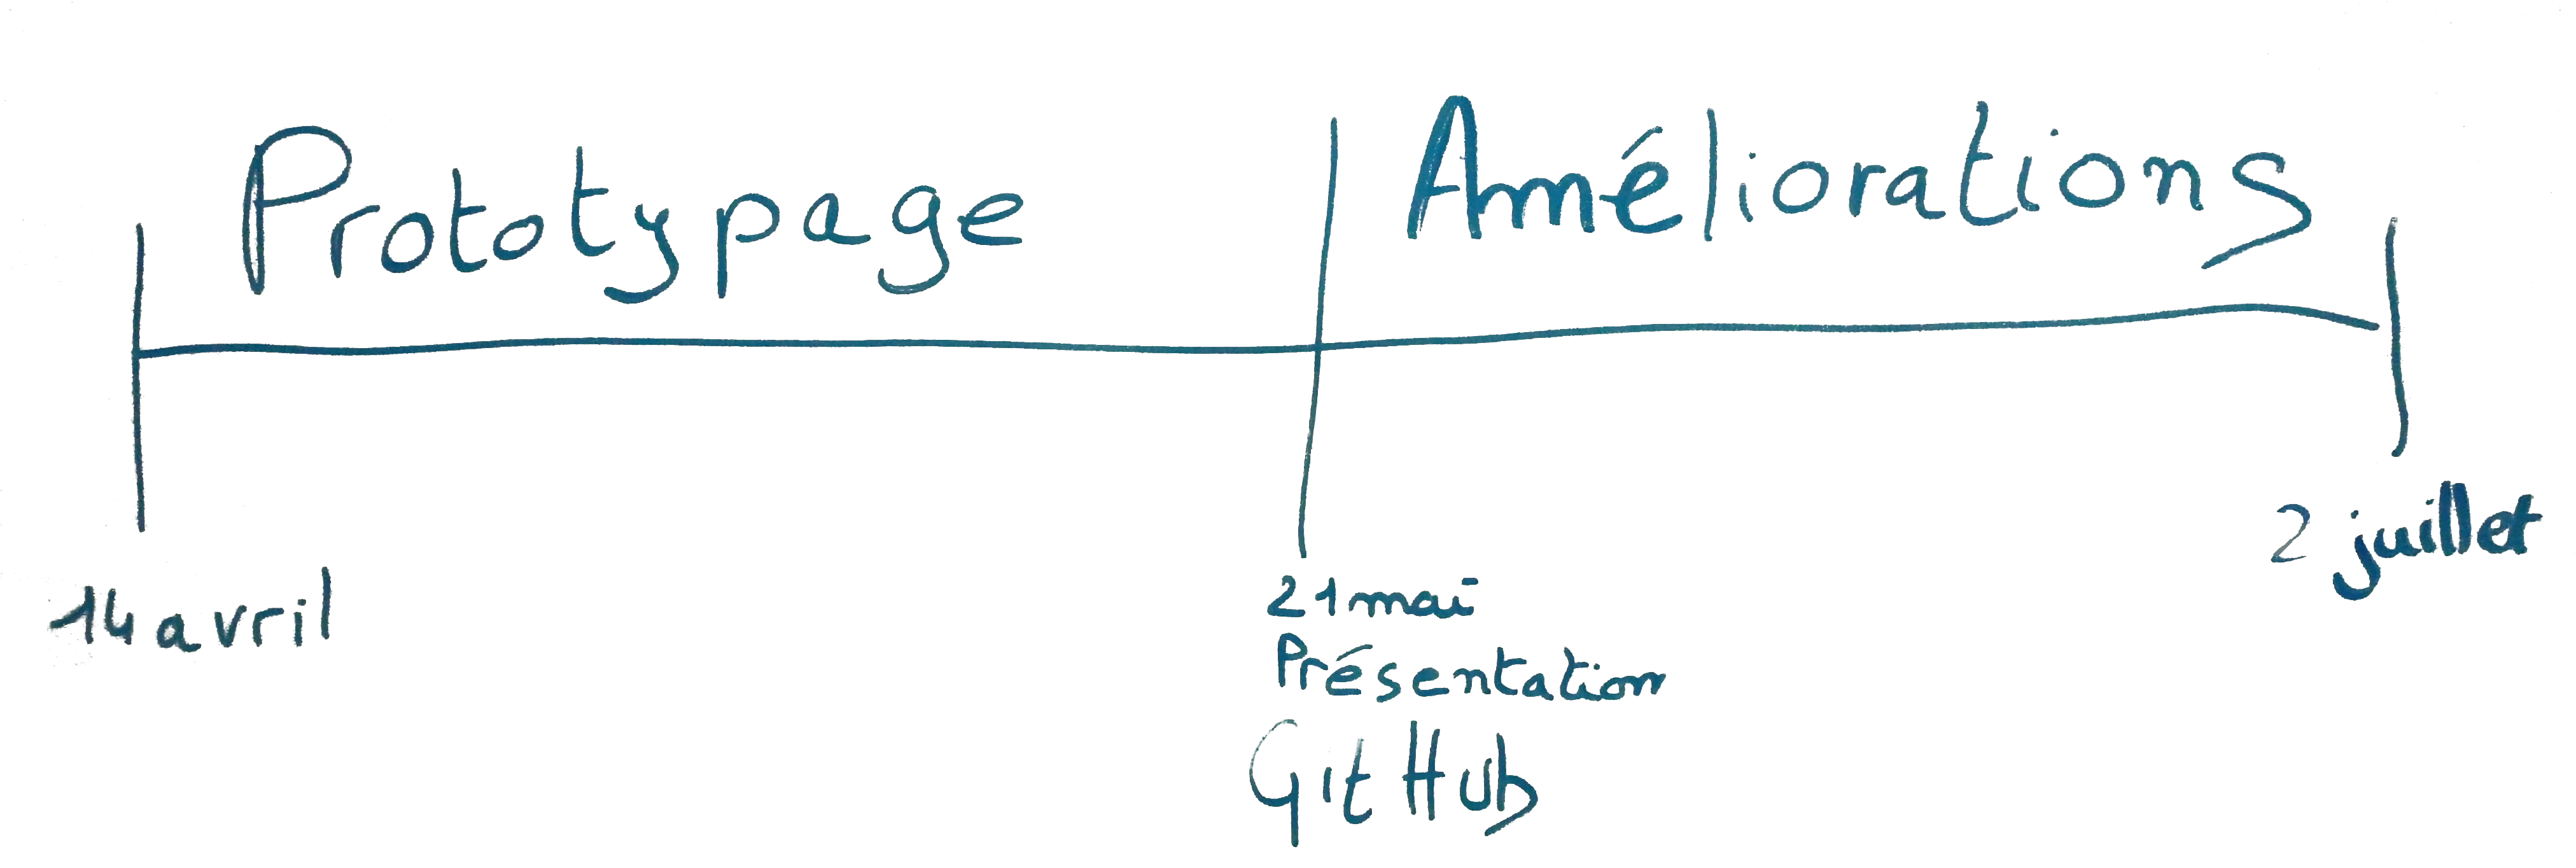 Prototypage
Améliorations
14 avril
21 mai
Présentation
GitHub
2 juillet